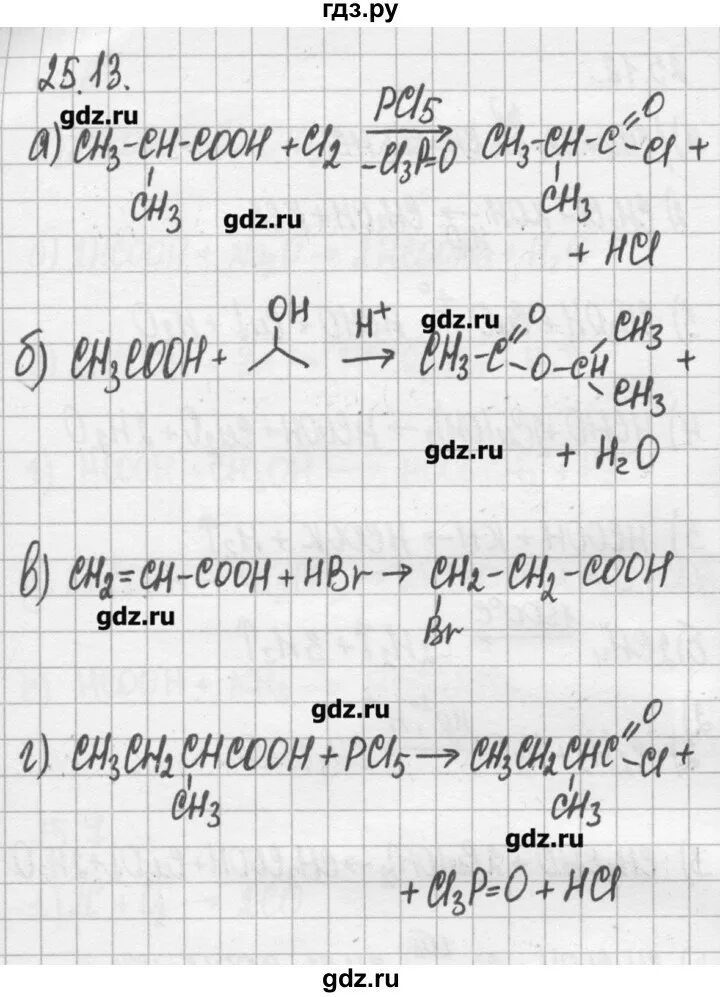 гдз.ру
25.13.
gdz.ru
а) CH3-CH-COOH + Cl2 PCl5 → -Cl3P=O CH3-CH-C O Cl +
CH3 CH3
gdz.ru
+ HCl
б) CH3COOH + OH H+ → CH3-C O -O-CH CH3 CH3 +
gdz.ru
gdz.ru
+ H2O
в) CH2=CH-COOH + HBr → CH2-CH2-COOH
Br
gdz.ru
gdz.ru
г) CH3CH2CHCOOH + PCl5 → CH3CH2CHC O Cl +
CH3 CH3
gdz.ru
+ Cl3P=O + HCl
gdz.ru